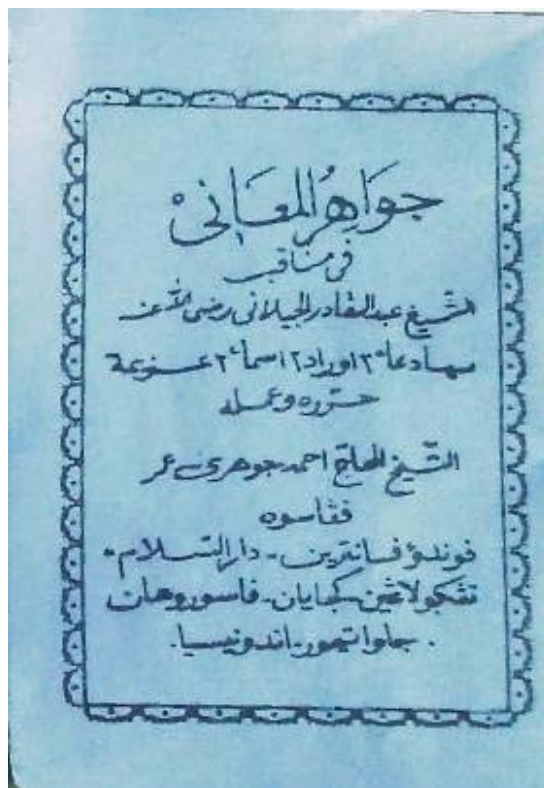 جَوَاهِرُ الْمَعَانِيْ
في مناقب
الشّيخ عبدالقادر الجيلاني رضي الله عنه
دعاء٢ اوراد٢ اسماء٢ عزيمة
حرره وعمله
الشّيخ الحاج احمد جوهري عمر
فڠاسوه
فوندؤ فسانترين - دارالسّلام -
تڠكولاڠين - كبايان - فاسوروهان
جاوا تيمور - اندونيسيا.